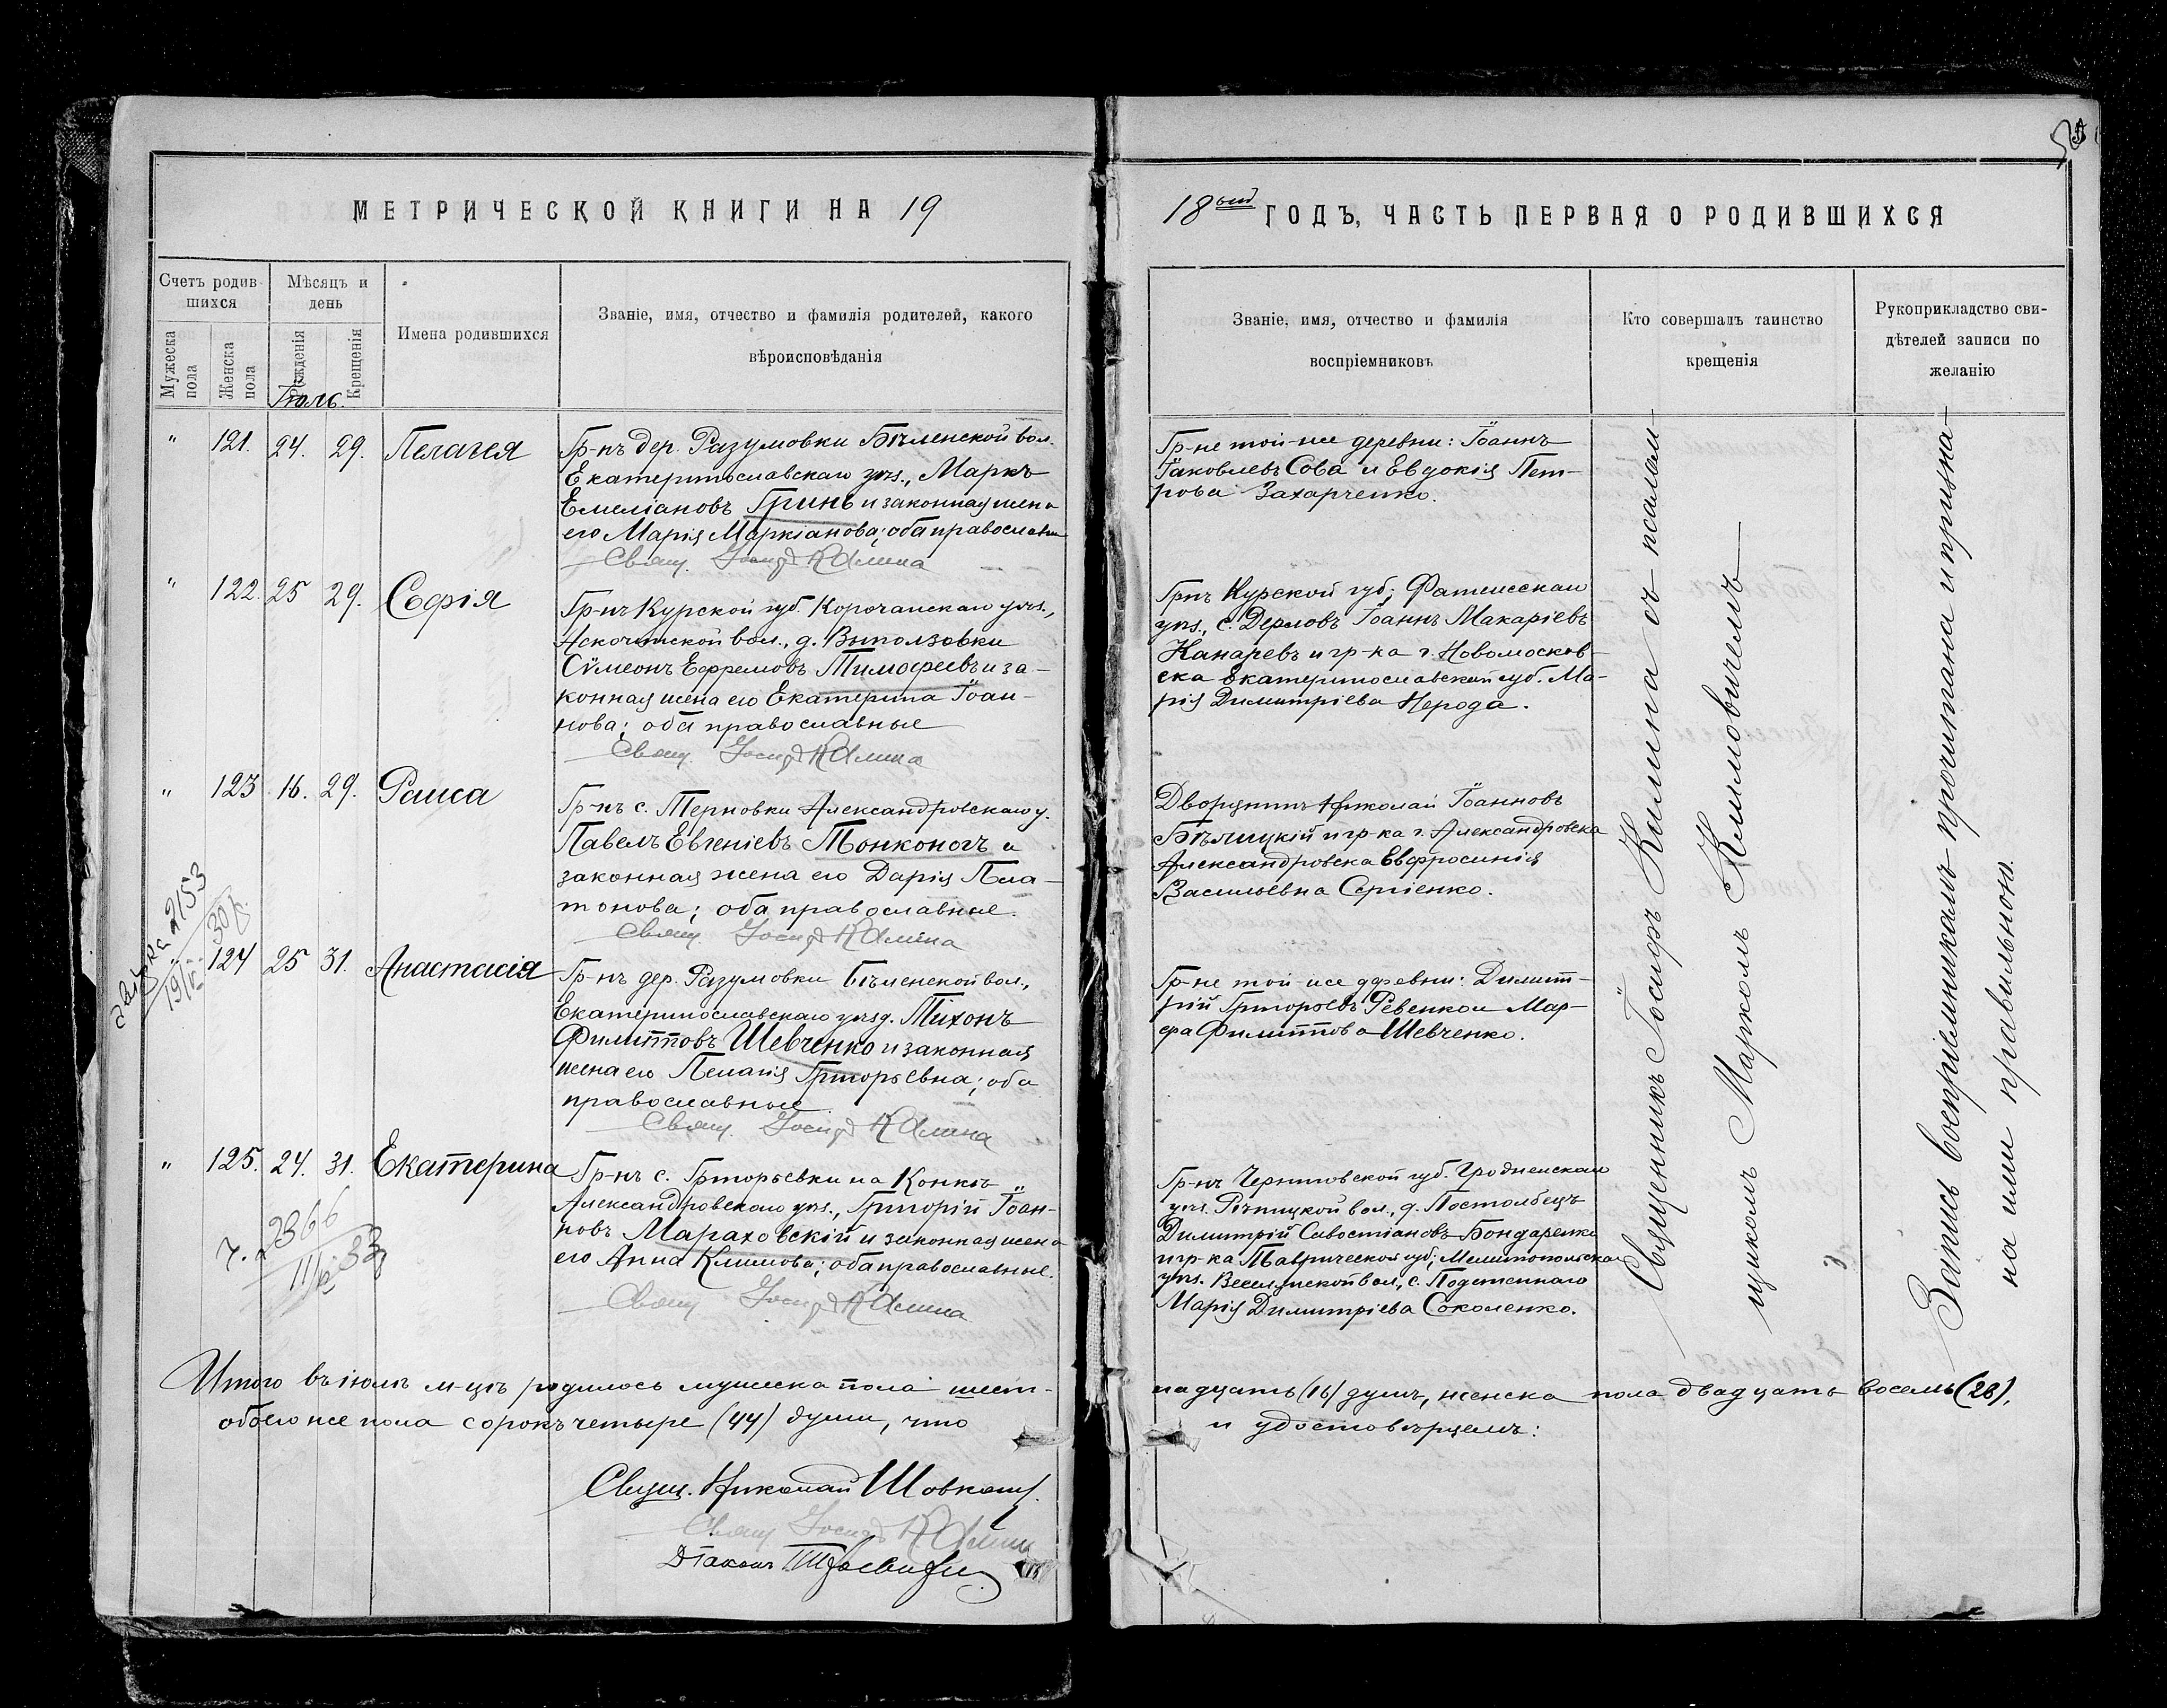 МЕТРИЧЕСКОЙ КНИГИ НА 19
Счетъ родив
шихся
Мужеска
пола
Женска
пола
Мѣсяцъ и
день
Рожденія
Крещенія
Имена родившихся
Званіе, имя, отчество и фамилія родителей, какого
вѣроисповѣданія
Іюль.
" 121. 24. 29. Пелагея
Гр-нъ дер. Разумовки Бѣленской вол.
Екатеринославскаго уѣз., Маркъ
Емеліановъ Гринь и законная жена
его Марія Маркіанова; оба православн
Свящ. Іосиф Калина
" 122. 25 29. Софія
Гр-нъ Курской губ. Корочанскаго уѣз.,
вол., д. Выползовки
Сѵмеонъ Ефремовъ Тимофеевъ и за-
конная жена его Екатерина Іоан-
нова; оба православные
Свящ. Іосиф Калина
" 123 16. 29. Раиса
Гр-нъ с. Терновки Александровскаго у.
Павелъ Евгеніевъ Тонконогъ и
законная жена его Дарія Пла-
тонова; оба православные.
Свящ. Іосиф Калина
2153
124 25 31. Анастасія
Гр-нъ дер. Разумовки Бѣленской вол.,
Екатеринославскаго уѣзд. Тихонъ
Филипповъ Шевченко и законная
жена его Пелагія Григорьевна; оба
православные.
Свящ. Іосиф Калина
" 125. 24. 31. Екатерина
Гр-нъ с. Григорьевки на Конкѣ
Александровскаго уѣз., Григорій Іоан-
новъ Мараховскій и законная жена
его Анна Климова; оба православные.
Свящ Іосиф Калина
2366
Итого въ іюлѣ м-цѣ родилось мужеска пола шест-
обоего же пола сорокъ четыре (44) души, что
Свящ. Николай
Свящ Іосиф Калина
Діаконъ
18ый ГОДЪ, ЧАСТЬ ПЕРВАЯ О РОДИВШИХСЯ
Званіе, имя, отчество и фамилія
воспріемниковъ
Кто совершалъ таинство
крещенія
Рукоприкладство сви-
дѣтелей записи по
желанію
Гр-не той-же деревни: Іоаннъ
Іаковлевъ Сова и Евдокія Пет-
рова Захарченко.
Гр-нъ Курской губ; Фатежскаго
уѣз., с. Дерловъ Іоаннъ Макаріевъ
Канаревъ и гр-ка г. Новомосков-
ска Екатеринославской губ. Ма-
рія Димитріева Нерода.
Дворянинъ Николай Іоанновъ
Бѣлицкій и гр-ка г. Александровска
Александровска Евфросинія
Васильевна Сергіенко.
Гр-не той же деревни: Димит-
рій Григорьевъ Ревенко и Мар-
фа Филиппова Шевченко.
Гр-нъ Черниговской губ. Гродненскаго
уѣз. Рѣпицкой вол., д. Постолбецъ
Димитрій Савостіановъ Бондаренко
и гр-ка Таврической губ; Мелитопольскаго
уѣз. вол., с. Подстепнаго
Марія Димитріева Соколенко.
Священникъ Іосифъ Калина съ псалом-
щикомъ Маркомъ Климовичемъ
Запись воспріемникамъ прочитана и призна-
на ими правильною.
надцать (16) душъ, женска пола двадцать восемь (28),
и удостовѣряемъ: